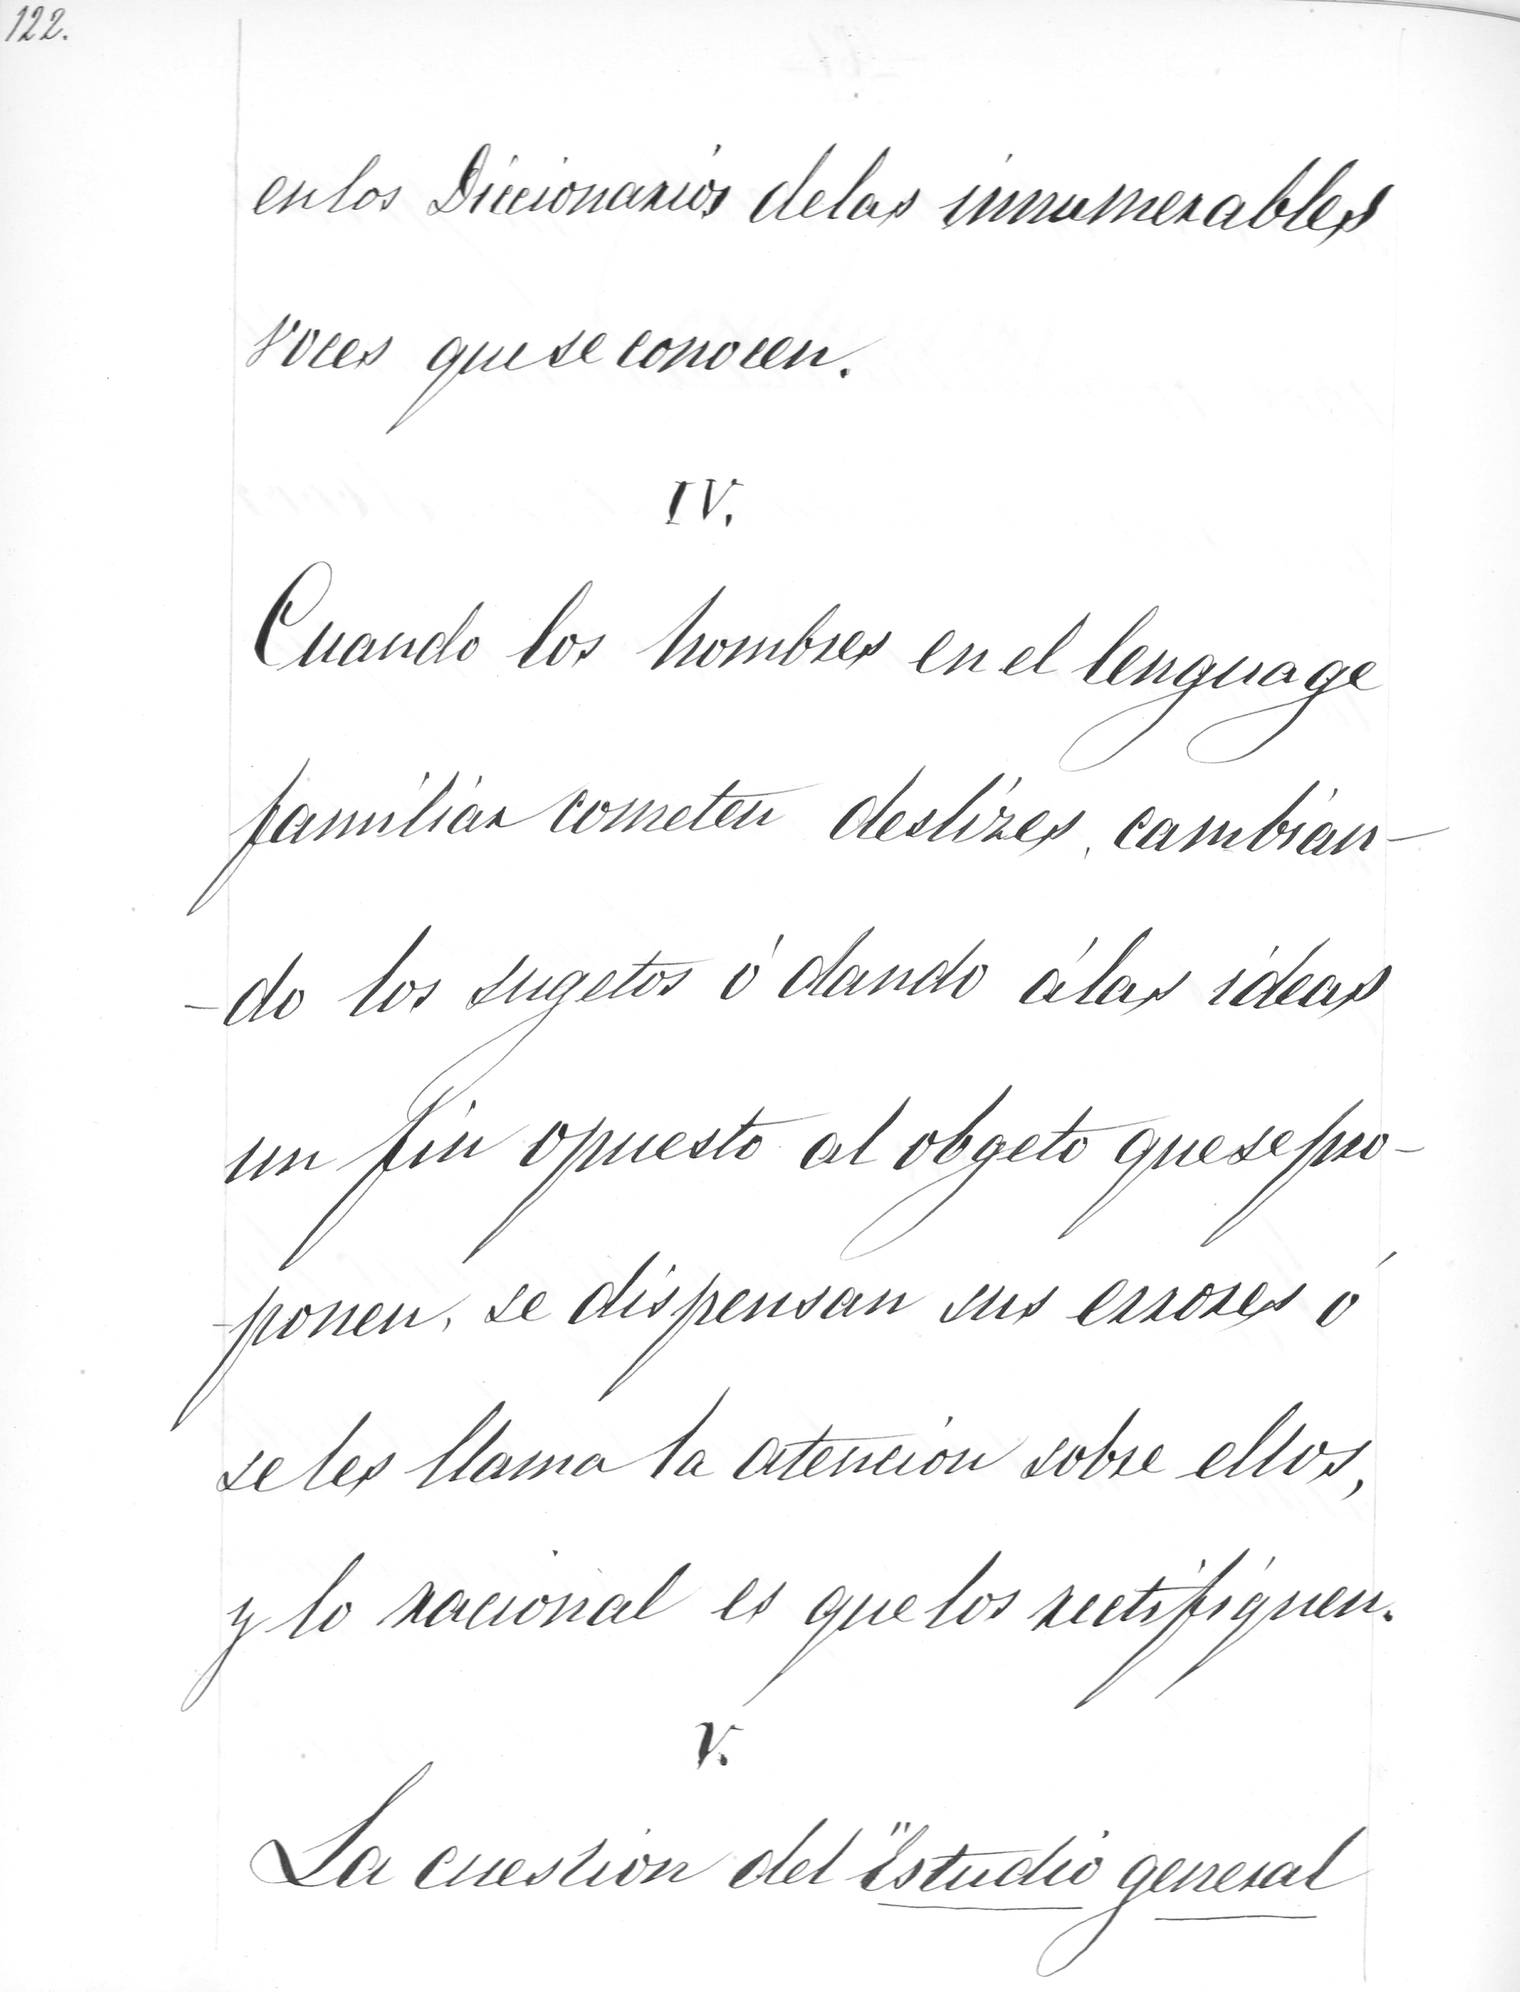 122.
en los Diccionarios de las innumerables
voces que se conocen.
IV.
Cuando los hombres en el lenguage
familiar cometen deslizes, cambian-
-do los sugetos ó dando á las ideas
un fin opuesto al obgeto que se pro-
-ponen, se dispensan sus errores ó
se les llama la atencion sobre ellos,
y lo racional es que los rectifiquen.
V.
La cuestion del "Estudio general